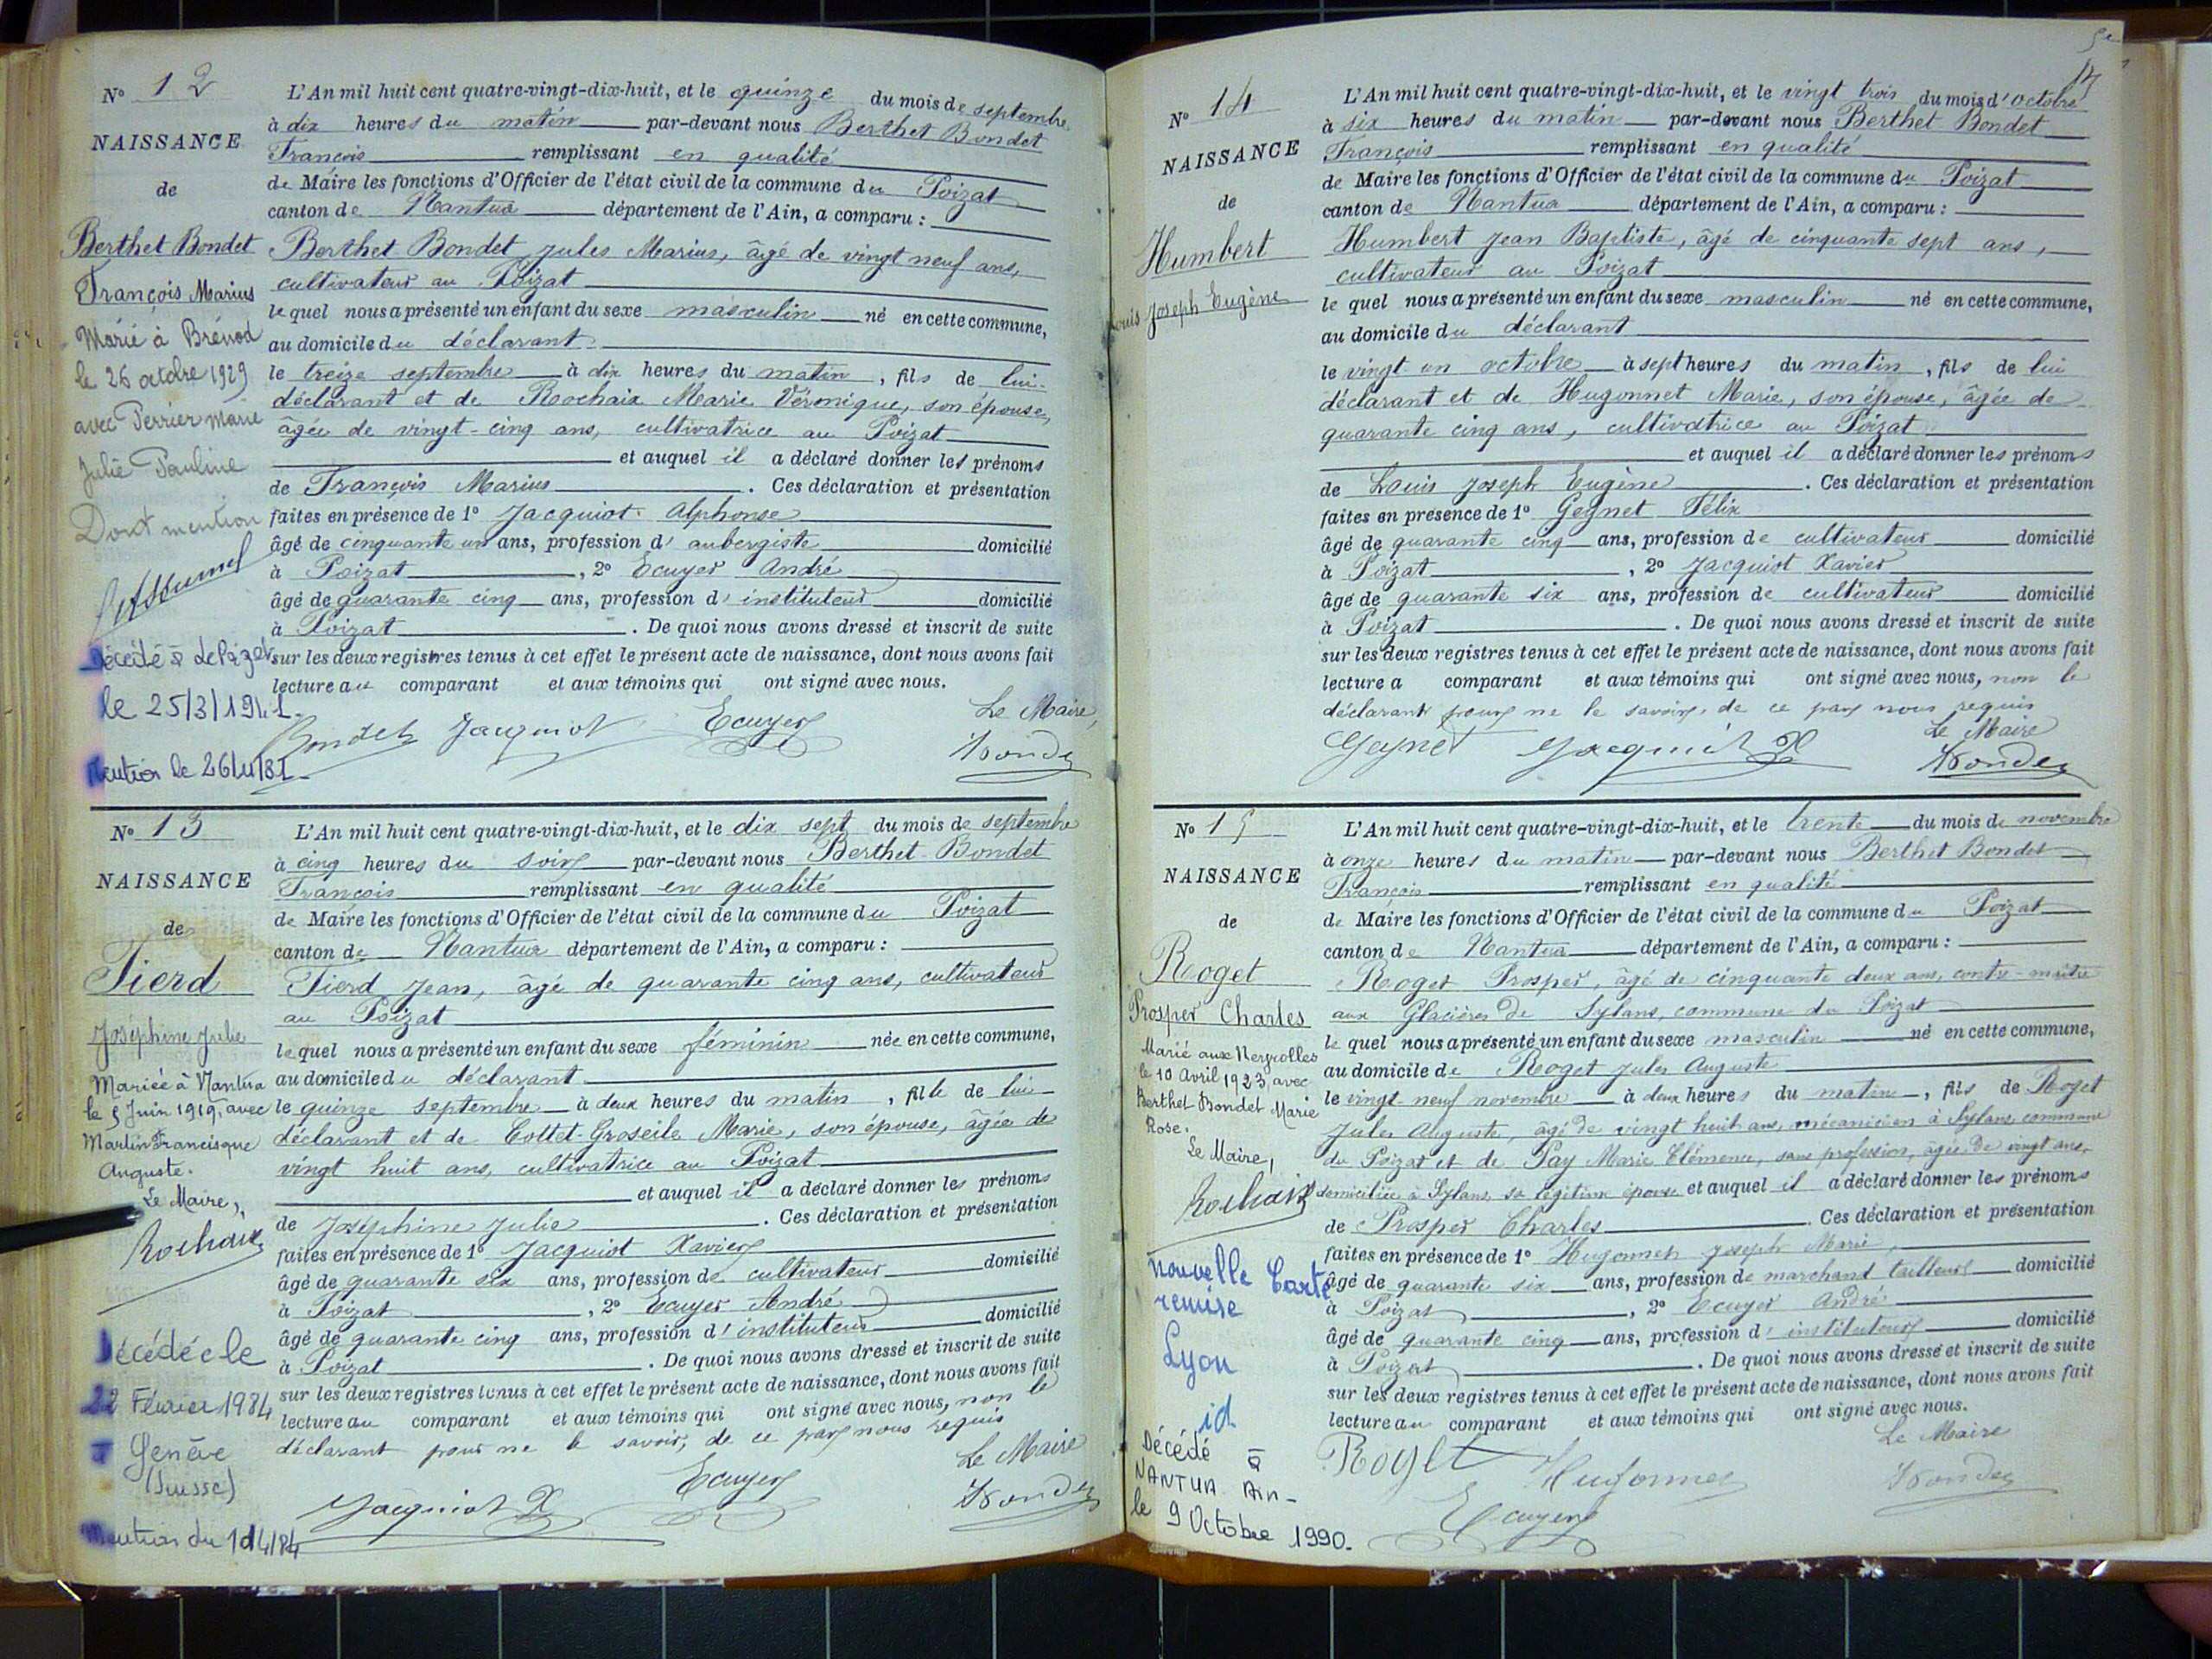 N° 12
NAISSANCE
de
Berthet Bondet
François Marius
Marié à Brénod
le 26 octobre 1929
avec Perrier Marie
Julie Pauline
Dont mention
Décédé à Le Poizat
le 25/3/1941.
Mention le
L'An mil huit cent quatre-vingt-dix-huit, et le quinze du mois de septembre
à dix heures du matin par-devant nous Berthet Bondet
François remplissant en qualité
de Maire les fonctions d'Officier de l'état civil de la commune du Poizat
canton de Nantua département de l'Ain, a comparu :
Berthet Bondet Jules Marius, âgé de vingt neuf ans,
cultivateur au Poizat
le quel nous a présenté un enfant du sexe masculin né en cette commune,
au domicile du déclarant
le treize septembre à dix heures du matin, fils de lui
déclarant et de Rochaix Marie Véronique, son épouse,
âgée de vingt-cinq ans, cultivatrice au Poizat
et auquel il a déclaré donner les prénoms
de François Marius. Ces déclaration et présentation
faites en présence de 1° Jacquiot Alphonse
âgé de cinquante un ans, profession d'aubergiste domicilié
à Poizat, 2° Ecuyer André
âgé de quarante cinq ans, profession d'instituteur domicilié
à Poizat. De quoi nous avons dressé et inscrit de suite
sur les deux registres tenus à cet effet le présent acte de naissance, dont nous avons fait
lecture au comparant et aux témoins qui ont signé avec nous.
Le Maire,
Bondet Jacquiot Ecuyer Bondet
N° 13
NAISSANCE
de
Tierd
Joséphine Julie
Mariée à Nantua
le 5 Juin 1919, avec
Martin Francisque
Auguste.
Le Maire,
Rochaix
Décédée le
22 Février 1984
à Genève
(Suisse)
Mention du
L'An mil huit cent quatre-vingt-dix-huit, et le dix sept du mois de septembre
à cinq heures du soir par-devant nous Berthet-Bondet
François remplissant en qualité
de Maire les fonctions d'Officier de l'état civil de la commune du Poizat
canton de Nantua département de l'Ain, a comparu :
Tierd Jean, âgé de quarante cinq ans, cultivateur
au Poizat
lequel nous a présenté un enfant du sexe féminin née en cette commune,
au domicile du déclarant
le quinze septembre à deux heures du matin, fille de lui
déclarant et de Cottet-Groseile Marie, son épouse, âgée de
vingt huit ans, cultivatrice au Poizat
et auquel il a déclaré donner les prénoms
de Joséphine Julie. Ces déclaration et présentation
faites en présence de 1° Jacquiot Xavier
âgé de quarante six ans, profession de cultivateur domicilié
à Poizat, 2° Ecuyer André
âgé de quarante cinq ans, profession d'instituteur domicilié
à Poizat. De quoi nous avons dressé et inscrit de suite
sur les deux registres tenus à cet effet le présent acte de naissance, dont nous avons fait
lecture au comparant et aux témoins qui ont signé avec nous, non le
déclarant pour ne le savoir, de ce par nous requis
Le Maire
Jacquiot X Ecuyer Bondet
N° 14
NAISSANCE
de
Humbert
Louis Joseph Eugène
L'An mil huit cent quatre-vingt-dix-huit, et le vingt trois du mois d'octobre
à six heures du matin par-devant nous Berthet Bondet
François remplissant en qualité
de Maire les fonctions d'Officier de l'état civil de la commune du Poizat
canton de Nantua département de l'Ain, a comparu :
Humbert Jean Baptiste, âgé de cinquante sept ans,
cultivateur au Poizat
le quel nous a présenté un enfant du sexe masculin né en cette commune,
au domicile du déclarant
le vingt un octobre à sept heures du matin, fils de lui
déclarant et de Hugonnet Marie, son épouse, âgée de
quarante cinq ans, cultivatrice au Poizat
et auquel il a déclaré donner les prénoms
de Louis Joseph Eugène. Ces déclaration et présentation
faites en présence de 1° Geynet Félix
âgé de quarante cinq ans, profession de cultivateur domicilié
à Poizat, 2° Jacquiot Xavier
âgé de quarante six ans, profession de cultivateur domicilié
à Poizat. De quoi nous avons dressé et inscrit de suite
sur les deux registres tenus à cet effet le présent acte de naissance, dont nous avons fait
lecture a comparant et aux témoins qui ont signé avec nous, non le
déclarant pour ne le savoir, de ce par nous requis
Le Maire
Geynet Jacquiot X Bondet
N° 15
NAISSANCE
de
Roget
Prosper Charles
Marié aux Neyrolles
le 10 Avril 1923, avec
Berthet Bondet Marie
Rose.
Le Maire,
Rochaix
nouvelle Carte
remise
Lyon
id
Décédé à
NANTUA Ain-
le 9 Octobre 1990.
L'An mil huit cent quatre-vingt-dix-huit, et le trente du mois de novembre
à onze heures du matin par-devant nous Berthet Bondet
François remplissant en qualité
de Maire les fonctions d'Officier de l'état civil de la commune du Poizat
canton de Nantua département de l'Ain, a comparu :
Roget Prosper, âgé de cinquante deux ans, contre-maître
aux Glacières de Sylans, commune du Poizat
le quel nous a présenté un enfant du sexe masculin né en cette commune,
au domicile de Roget Jules Auguste
le vingt-neuf novembre à deux heures du matin, fils de Roget
Jules Auguste, âgé de vingt huit ans, mécanicien à Sylans, commune
du Poizat et de Pay Marie Clémence, sans profession, âgée de vingt ans,
domiciliée à Sylans, sa légitime épouse et auquel il a déclaré donner les prénoms
de Prosper Charles. Ces déclaration et présentation
faites en présence de 1° Hugonnet Joseph Marie,
âgé de quarante six ans, profession de marchand tailleur domicilié
à Poizat, 2° Ecuyer André
âgé de quarante cinq ans, profession d'instituteur domicilié
à Poizat. De quoi nous avons dressé et inscrit de suite
sur les deux registres tenus à cet effet le présent acte de naissance, dont nous avons fait
lecture au comparant et aux témoins qui ont signé avec nous.
Le Maire
Roget Hugonnet Bondet
Ecuyer